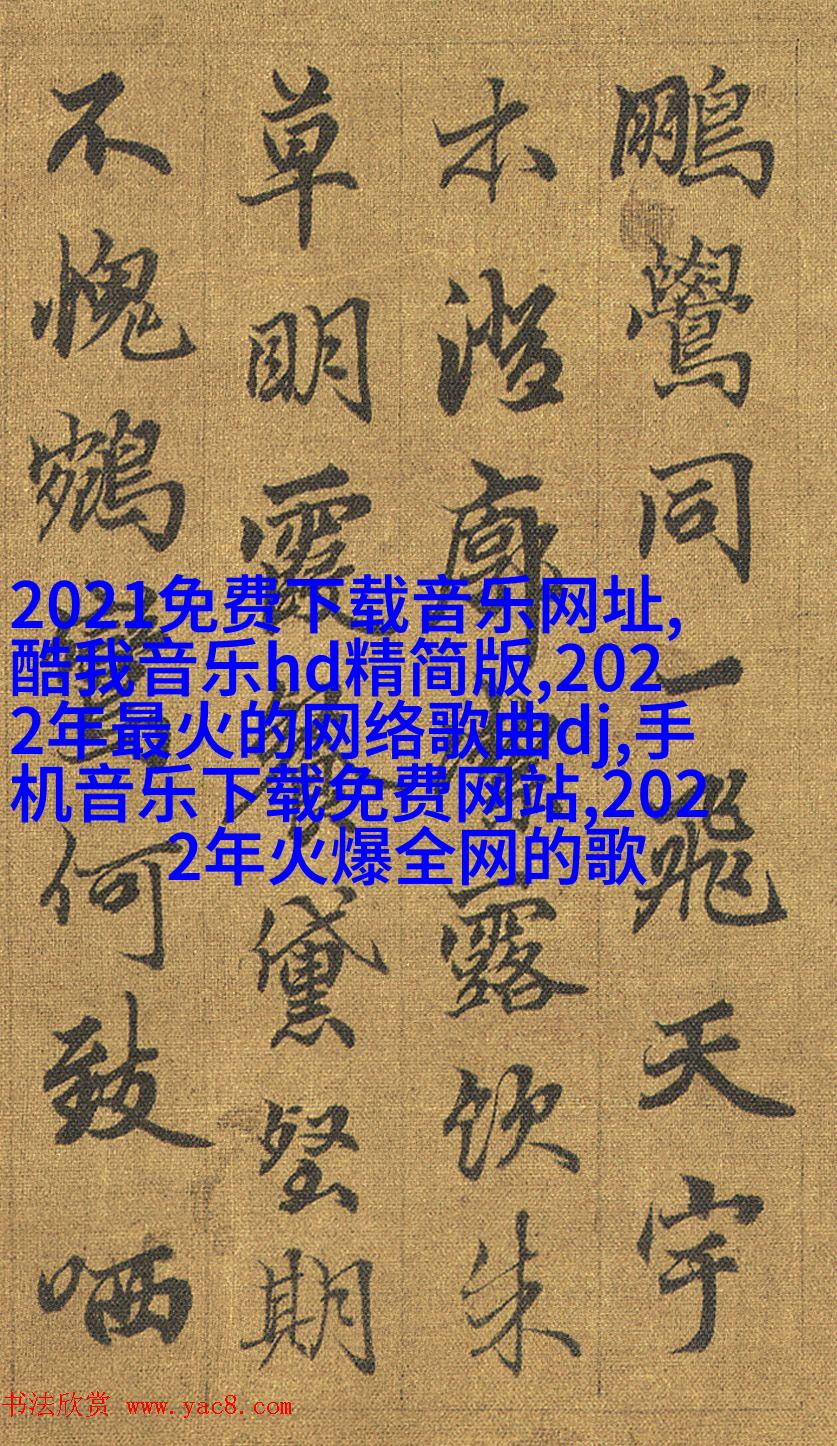 鵬鷽同一飛天宇
本澄廓露飲朱
草明霞餐黛壑期
不愧鶴何致哂
2021免费下载音乐网址,
酷我音乐hd精简版,202
2年最火的网络歌曲dj,手
机音乐下载免费网站,202
2年火爆全网的歌
书法欣赏 www.yac8.com